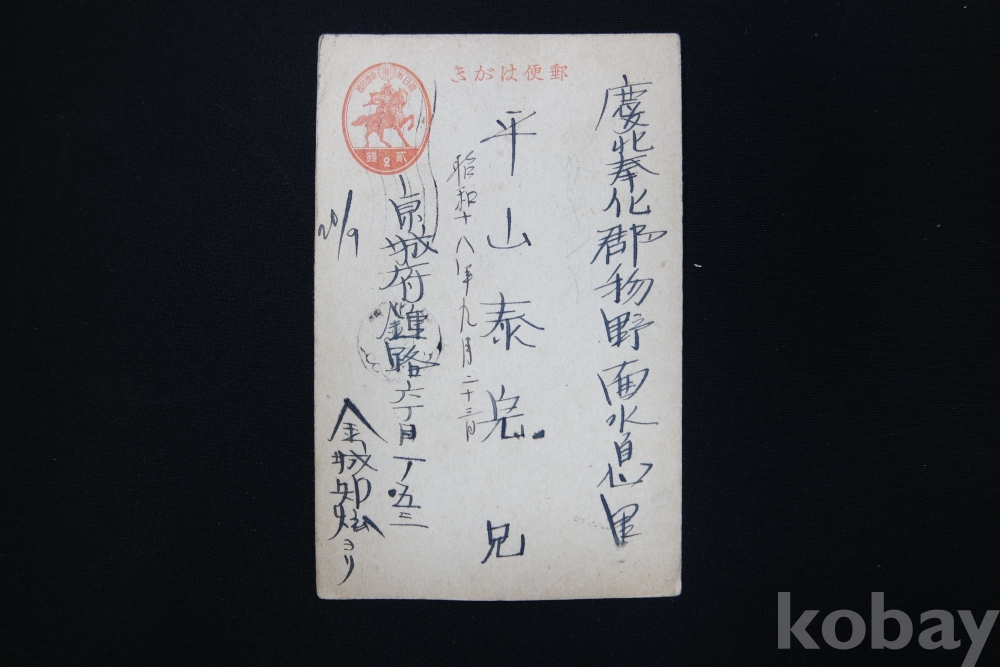 郵便はがき
大日本帝國郵便
貳 2 錢
慶北奉化郡物野面水息里
平山泰 兄
昭和十八年九月二十三日
京城府鍾路六丁目一ノ五三
金城 炫ヨリ
20/9
kobay